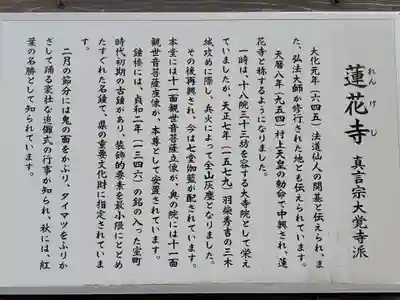 蓮花寺 真言宗大覚寺派
れんげじ
大化元年(六四五)法道仙人の開基と伝えられ、ま
た、弘法大師が修行された地とも伝えられています。
天暦八年(九五四)村上天皇の勅命で中興され、蓮
花寺と称するようになりました。
一時は、十八院三十三坊を容する大寺院として栄え
ていましたが、天正七年(一五七九)羽柴秀吉の三木
城攻めに際し、兵火によって全山灰塵となりました。
その後再興され、今は七堂伽藍が配されています。
本堂には十一面観世音菩薩立像が、奥の院には十一面
観世音菩薩座像が、本尊として安置されています。
鐘楼には、貞和二年(一三四六)の銘の入った室町
時代初期の古鐘があり、装飾的要素を最小限にとどめ
たすぐれた名鐘で、県の重要文化財に指定されていま
す。
二月の節分には鬼の面をかぶり、タイマツをふりか
ざして踊る豪壮な追儺式の行事が知られ、秋には、紅
葉の名勝として知られています。